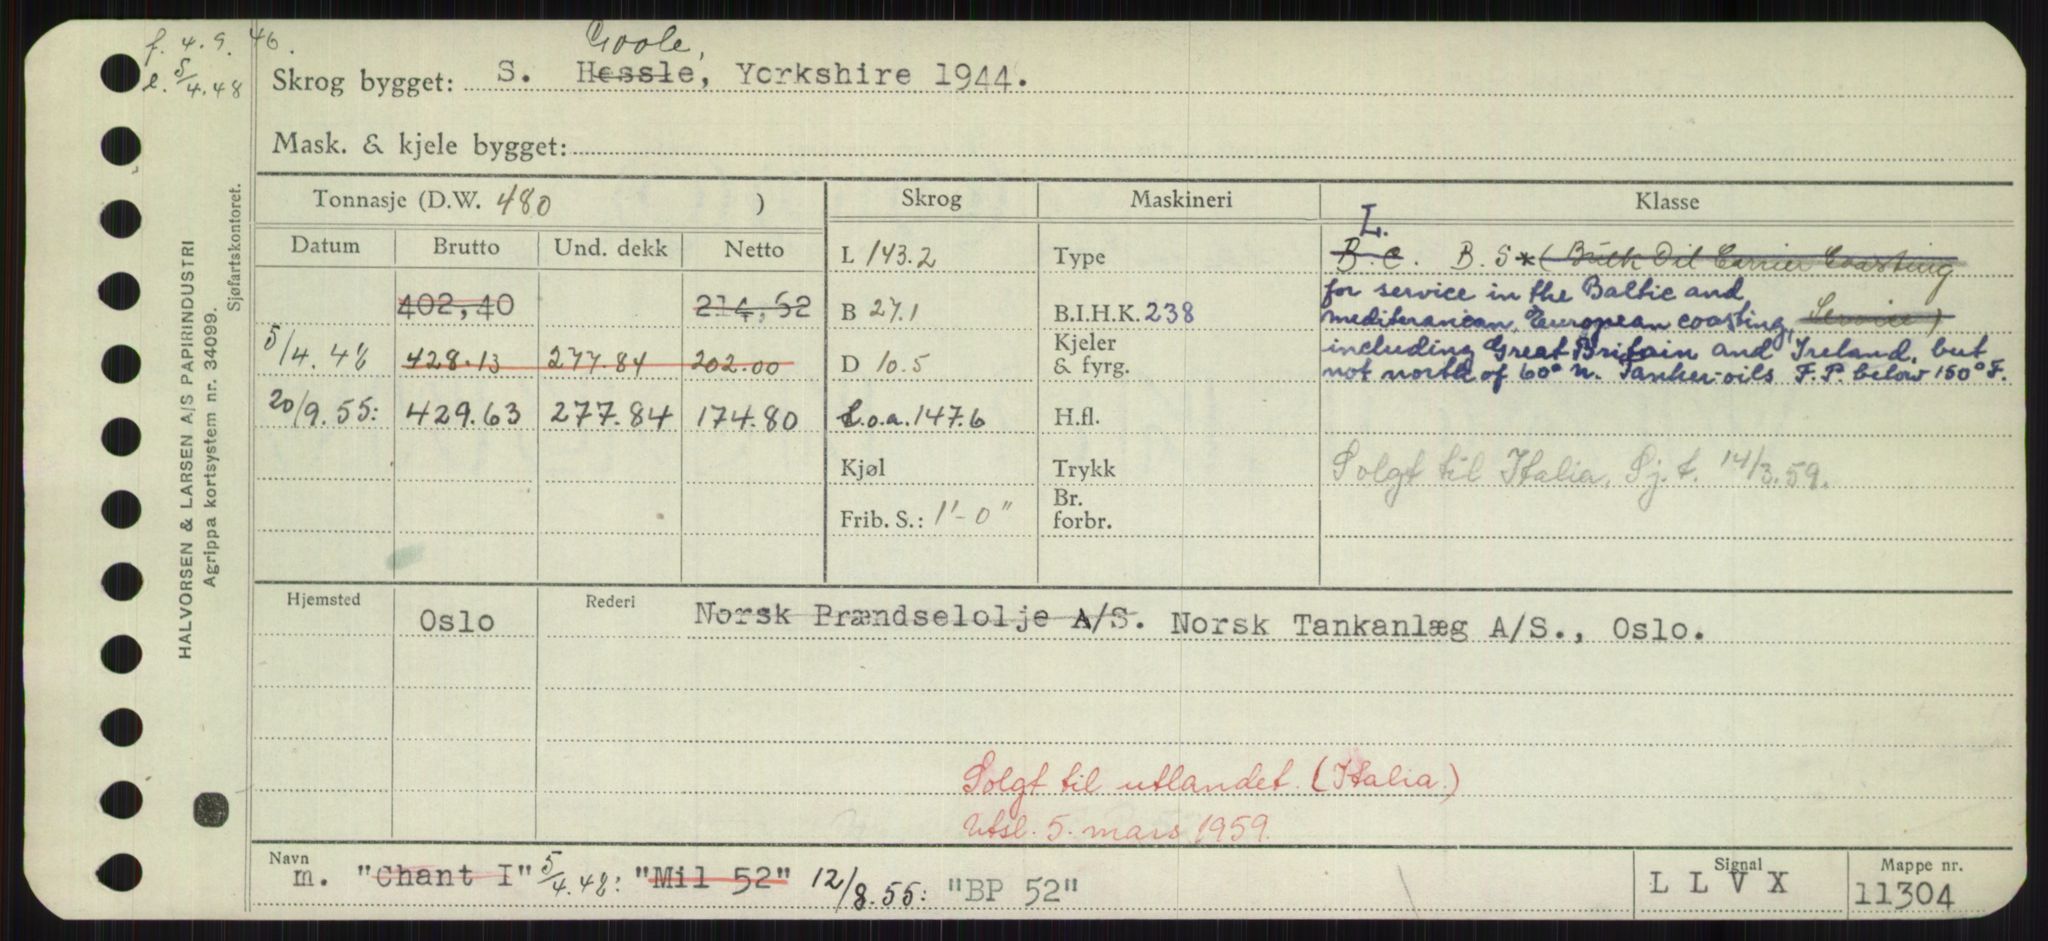 f. 4.9.46.
e. 5/4.48
Goole,
Skrog bygget: S. Hessle, Yorkshire 1944.
Mask. & kjele bygget:
Tonnasje (D.W. 480 )
Skrog
Maskineri
Klasse
Datum Brutto Und. dekk Netto
402,40 214,52
5/4.48 428.13 277.84 202.00
20/9.55: 429.63 277.84 174.80
L 143.2
B 27.1
D 10.5
L.o.a. 147.6
Kjøl
Frib. S.: 1'-0"
Type
B.I.H.K. 238
Kjeler
& fyrg.
H.fl.
Trykk
Br.
forbr.
L.
B.C. B.S* (Bulk Oil Carrier Coasting
for service in the Baltic and
mediteranean, European coasting, Service)
including Great Britain and Ireland, but
not north of 60° N. Tanker-oils F.P. below 150° F.
Solgt til Italia. Sj.t. 14/3.59.
Hjemsted Oslo Rederi Norsk Brændselolje A/S. Norsk Tankanlæg A/S., Oslo.
Solgt til utlandet. (Italia.)
Utsl. 5. mars 1959.
Navn Signal Mappe nr.
m. "Chant I" 5/4.48: "Mil 52" 12/8.55: "BP 52" L L V X 11304
HALVORSEN & LARSEN A/S PAPIRINDUSTRI
Agrippa kortsystem nr. 34099.
Sjøfartskontoret.